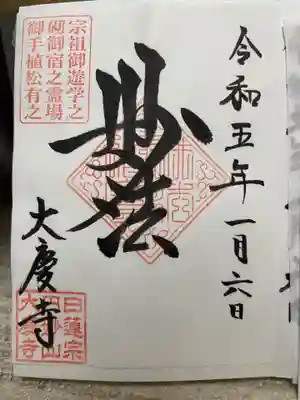 令和五年一月六日
妙法
宗祖御遊学之
砌御宿之霊場
御手植松有之
大慶寺
日蓮宗
大慶寺